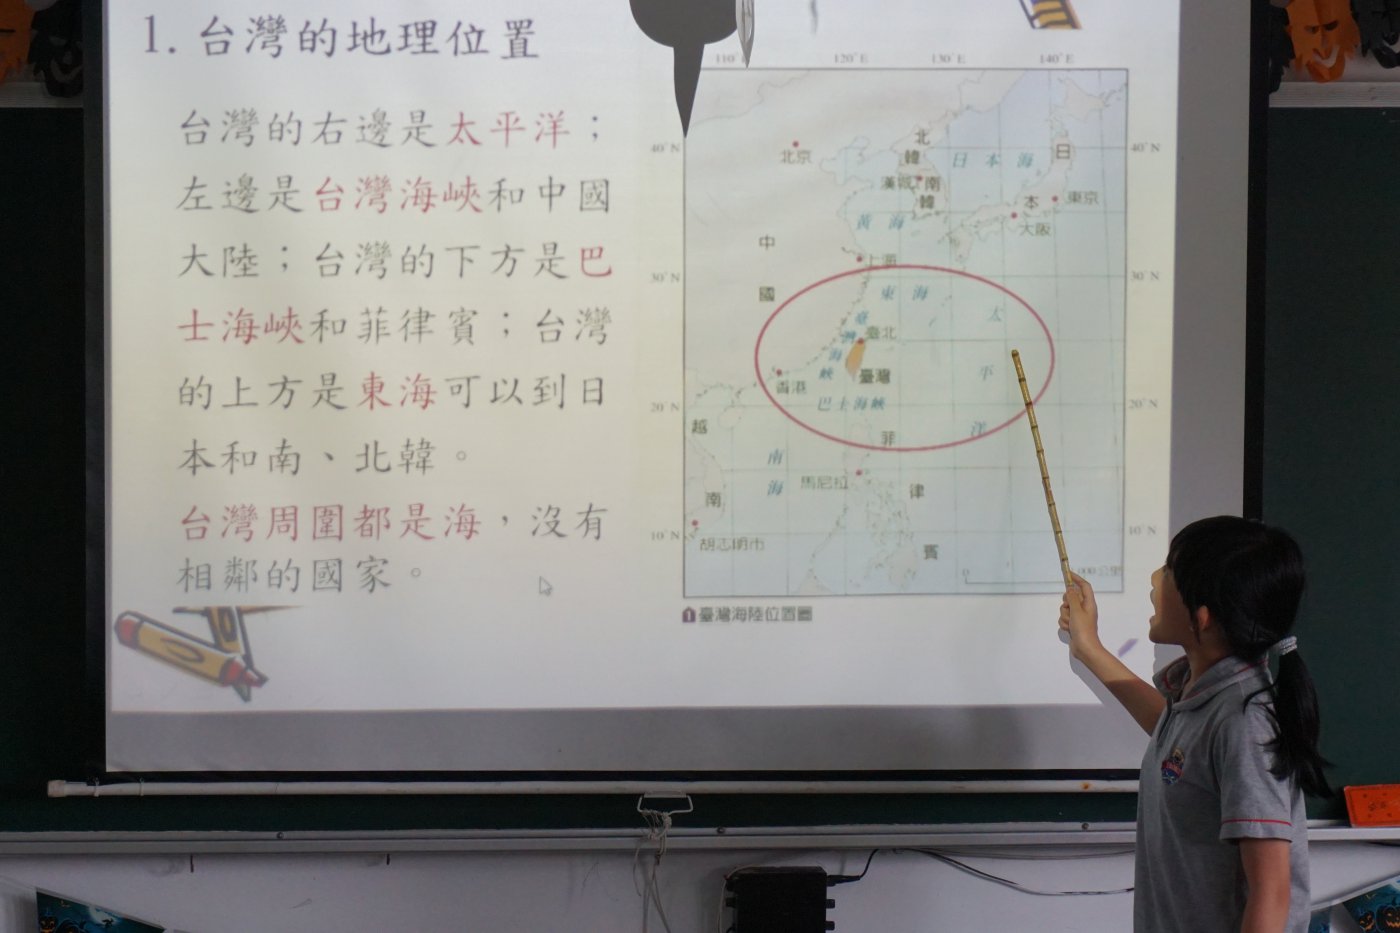 1. 台灣的地理位置
台灣的右邊是太平洋；
左邊是台灣海峽和中國
大陸；台灣的下方是巴
士海峽和菲律賓；台灣
的上方是東海可以到日
本和南、北韓。
台灣周圍都是海，沒有
相鄰的國家。
110°E 120°E 130°E 140°E
40°N 40°N
北韓
日本海
日本
北京
漢城
南韓
東京
大阪
黃海
中國
上海
30°N 30°N
東海
太平洋
臺灣海峽
臺北
臺灣
香港
巴士海峽
20°N 20°N
越南
菲律賓
南海
馬尼拉
胡志明市
10°N 10°N
0
公里
1 臺灣海陸位置圖